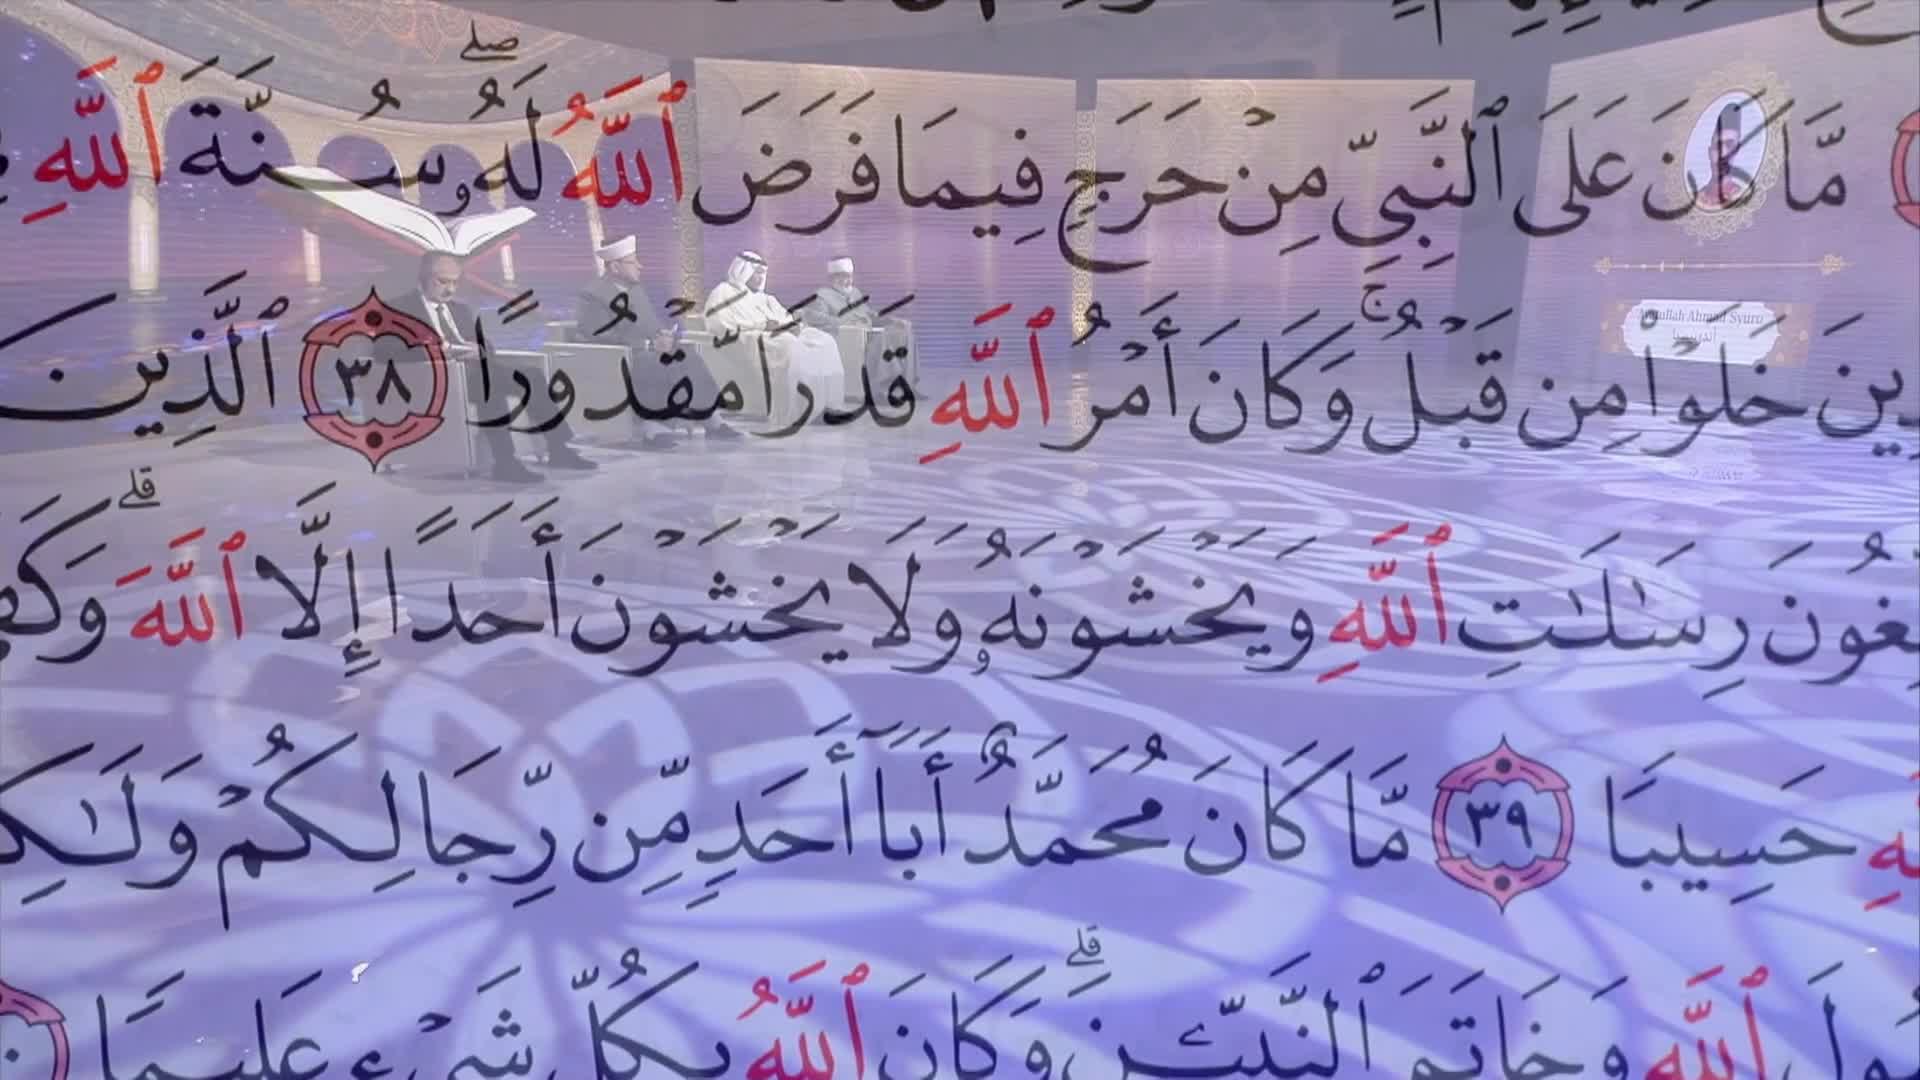 مَّا كَانَ عَلَى ٱلنَّبِيِّ مِنْ حَرَجٍ فِيمَا فَرَضَ ٱللَّهُ لَهُۥ ۖ سُنَّةَ ٱللَّهِ
خَلَوْا۟ مِن قَبْلُ ۚ وَكَانَ أَمْرُ ٱللَّهِ قَدَرًا مَّقْدُورًا ٣٨ ٱلَّذِينَ
رِسَـٰلَـٰتِ ٱللَّهِ وَيَخْشَوْنَهُۥ وَلَا يَخْشَوْنَ أَحَدًا إِلَّا ٱللَّهَ ۗ
حَسِيبًا ٣٩ مَّا كَانَ مُحَمَّدٌ أَبَآ أَحَدٍ مِّن رِّجَالِكُمْ
ٱللَّهِ وَخَاتَمَ ٱلنَّبِيِّـۧنَ ۗ وَكَانَ ٱللَّهُ بِكُلِّ شَىْءٍ عَلِيمًا
Ahmad Syuro